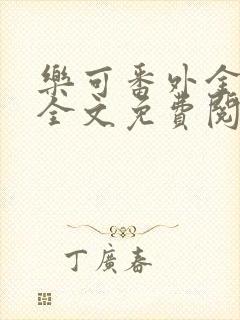 樂可番外全
全文免費閱
丁廣春